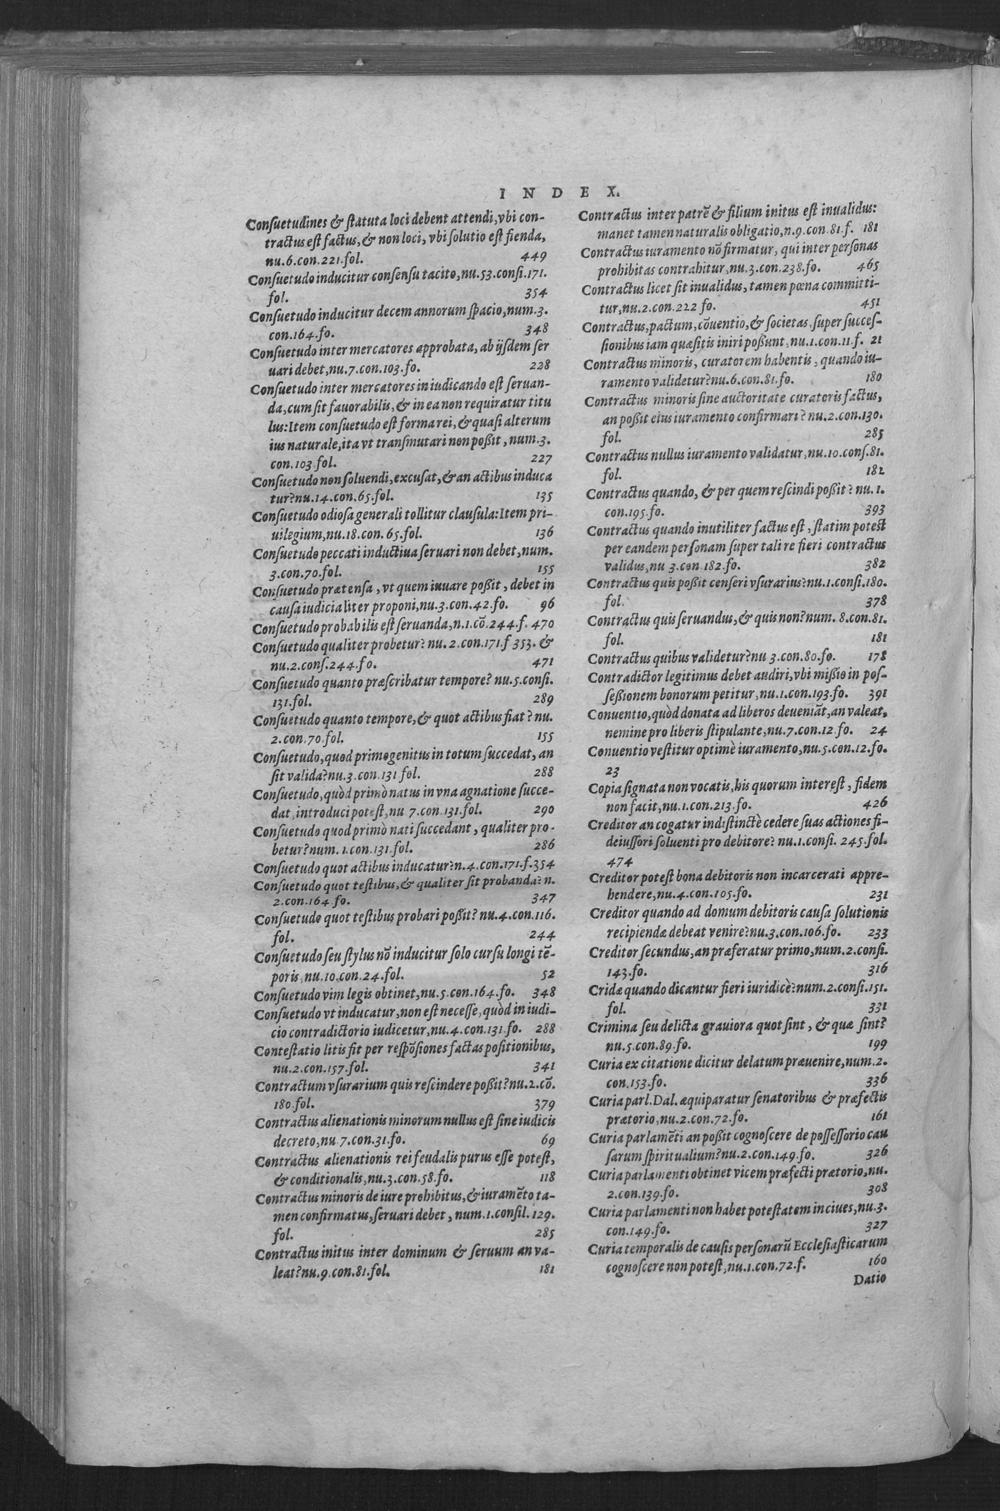 INDEX.
Conſuetudines & ſtatuta loci debent attendi, vbi con-
tractus eſt factus, & non loci, vbi ſolutio eſt fienda,
nu.6.con.221.fol. 449
Conſuetudo inducitur conſenſu tacito, nu.53.conſi.171.
fol. 354
Conſuetudo inducitur decem annorum ſpacio, num.3.
con.164.fo. 348
Conſuetudo inter mercatores approbata, ab ijſdem ſer
uari debet, nu.7.con.103.fo. 228
Conſuetudo inter mercatores in iudicando eſt ſeruan-
da, cum ſit fauorabilis, & in ea non requiratur titu
lus: Item conſuetudo eſt forma rei, & quaſi alterum
ius naturale, ita vt tranſmutari non poßit, num.3.
con.103.fol. 227
Conſuetudo non ſoluendi, excuſat, & an actibus induca
tur? nu.14.con.65.fol. 135
Conſuetudo odioſa generali tollitur clauſula: Item pri-
uilegium, nu.18.con.65.fol. 136
Conſuetudo peccati inductiua ſeruari non debet, num.
3.con.70.fol. 155
Conſuetudo prætenſa, vt quem iuuare poßit, debet in
cauſa iudicialiter proponi, nu.3.con.42.fo. 96
Conſuetudo probabilis eſt ſeruanda, n.1.cō.244.f. 470
Conſuetudo qualiter probetur? nu.2.con.171.f 353. &
nu.2.conſ.244.fo. 471
Conſuetudo quanto præſcribatur tempore? nu.5.conſi.
131.fol. 289
Conſuetudo quanto tempore, & quot actibus fiat? nu.
2.con.70.fol. 155
Conſuetudo, quod primogenitus in totum ſuccedat, an
ſit valida? nu.3.con.131.fol. 288
Conſuetudo, quòd primò natus in vna agnatione ſucce-
dat, introduci poteſt, nu 7.con.131.fol. 290
Conſuetudo quod primò nati ſuccedant, qualiter pro-
betur? num.1.con.131.fol. 286
Conſuetudo quot actibus inducatur? n.4.con.171.f.354
Conſuetudo quot teſtibus, & qualiter ſit probanda? n.
2.con.164.fo. 347
Conſuetudo quot teſtibus probari poßit? nu.4.con.116.
fol. 244
Conſuetudo ſeu ſtylus nō inducitur ſolo curſu longi tē-
poris, nu.10.con.24.fol. 52
Conſuetudo vim legis obtinet, nu.5.con.164.fo. 348
Conſuetudo vt inducatur, non eſt neceſſe, quòd in iudi-
cio contradictorio iudicetur, nu.4.con.131.fo. 288
Conteſtatio litis fit per reſpōſiones factas poſitionibus,
nu.2.con.157.fol. 341
Contractum vſurarium quis reſcindere poßit? nu.2.cō.
180.fol. 379
Contractus alienationis minorum nullus eſt ſine iudicis
decreto, nu.7.con.31.fo. 69
Contractus alienationis rei feudalis purus eſſe poteſt,
& conditionalis, nu.3.con.58.fo. 118
Contractus minoris de iure prohibitus, & iuramēto ta-
men confirmatus, ſeruari debet, num.1.conſil.129.
fol. 285
Contractus initus inter dominum & ſeruum an va-
leat? nu.9.con.81.fol. 181
Contractus inter patrē & filium initus eſt inualidus:
manet tamen naturalis obligatio, n.9.con.81.f. 181
Contractus iuramento nō firmatur, qui inter perſonas
prohibitas contrahitur, nu.3.con.238.fo. 465
Contractus licet ſit inualidus, tamen pœna committi-
tur, nu.2.con.222 fo. 451
Contractus, pactum, cōuentio, & ſocietas, ſuper ſucceſ-
ſionibus iam quæſitis iniri poßunt, nu.1.con.11.f. 21
Contractus minoris, curatorem habentis, quando iu-
ramento validetur? nu.6.con.81.fo. 180
Contractus minoris ſine auctoritate curatoris factus,
an poßit eius iuramento confirmari? nu.2.con.130.
fol. 285
Contractus nullus iuramento validatur, nu.10.conſ.81.
fol. 182
Contractus quando, & per quem reſcindi poßit? nu.1.
con.195.fo. 393
Contractus quando inutiliter factus eſt, ſtatim poteſt
per eandem perſonam ſuper tali re fieri contractus
validus, nu 3.con.182.fo. 382
Contractus quis poßit cenſeri vſurarius? nu.1.conſi.180.
fol. 378
Contractus quis ſeruandus, & quis non? num. 8.con.81.
fol. 181
Contractus quibus validetur? nu 3.con.80.fo. 178
Contradictor legitimus debet audiri, vbi mißio in poſ-
ſeßionem bonorum petitur, nu.1.con.193.fo. 391
Conuentio, quòd donata ad liberos deueniāt, an valeat,
nemine pro liberis ſtipulante, nu.7.con.12.fo. 24
Conuentio veſtitur optimè iuramento, nu.5.con.12.fo.
23
Copia ſignata non vocatis, his quorum intereſt, fidem
non facit, nu.1.con.213.fo. 426
Creditor an cogatur indiſtinctè cedere ſuas actiones fi-
deiuſſori ſoluenti pro debitore? nu.1.conſi. 245.fol.
474
Creditor poteſt bona debitoris non incarcerati appre-
hendere, nu.4.con.105.fo. 231
Creditor quando ad domum debitoris cauſa ſolutionis
recipiendæ debeat venire? nu.3.con.106.fo. 233
Creditor ſecundus, an præferatur primo, num.2.conſi.
143.fo. 316
Cridæ quando dicantur fieri iuridicè? num.2.conſi.151.
fol. 331
Crimina ſeu delicta grauiora quot ſint, & quæ ſint?
nu.5.con.89.fo. 199
Curia ex citatione dicitur delatum præuenire, num.2.
con.153.fo. 336
Curia parl. Dal. æquiparatur ſenatoribus & præfectis
prætorio, nu.2.con.72.fo. 161
Curia parlamēti an poßit cognoſcere de poſſeſſorio cau
ſarum ſpiritualium? nu.2.con.149.fo. 326
Curia parlamenti obtinet vicem præfecti prætorio, nu.
2.con.139.fo. 308
Curia parlamenti non habet poteſtatem in ciues, nu.3.
con.149.fo. 327
Curia temporalis de cauſis perſonarū Eccleſiaſticarum
cognoſcere non poteſt, nu.1.con.72.f. 160
Datio